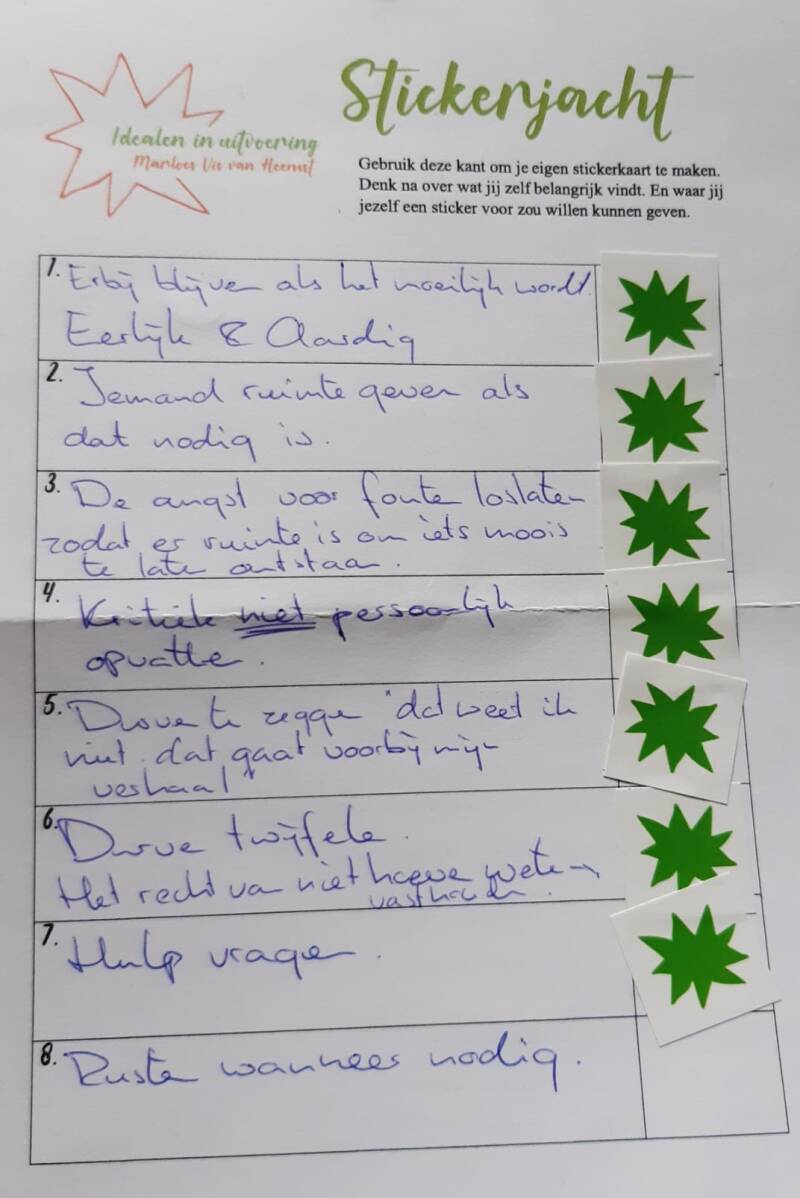 Idealen in uitvoering
Marloes Vis van Heemst
Stickerjacht
Gebruik deze kant om je eigen stickerkaart te maken.
Denk na over wat jij zelf belangrijk vindt. En waar jij
jezelf een sticker voor zou willen kunnen geven.
1. Erbij blijven als het moeilijk wordt.
Eerlijk & Aardig
2. Iemand ruimte geven als
dat nodig is.
3. De angst voor foute loslaten
zodat er ruimte is om iets moois
te late ontstaan.
4. Kritiek niet persoonlijk
opvatte.
5. Durve te zegge "dat weet ik
niet. dat gaat voorbij mijn
verhaal"
6. Durve twijfele.
Het recht van niet hoeve wete
vasthouden.
7. Hulp vragen.
8. Ruste wanneer nodig.